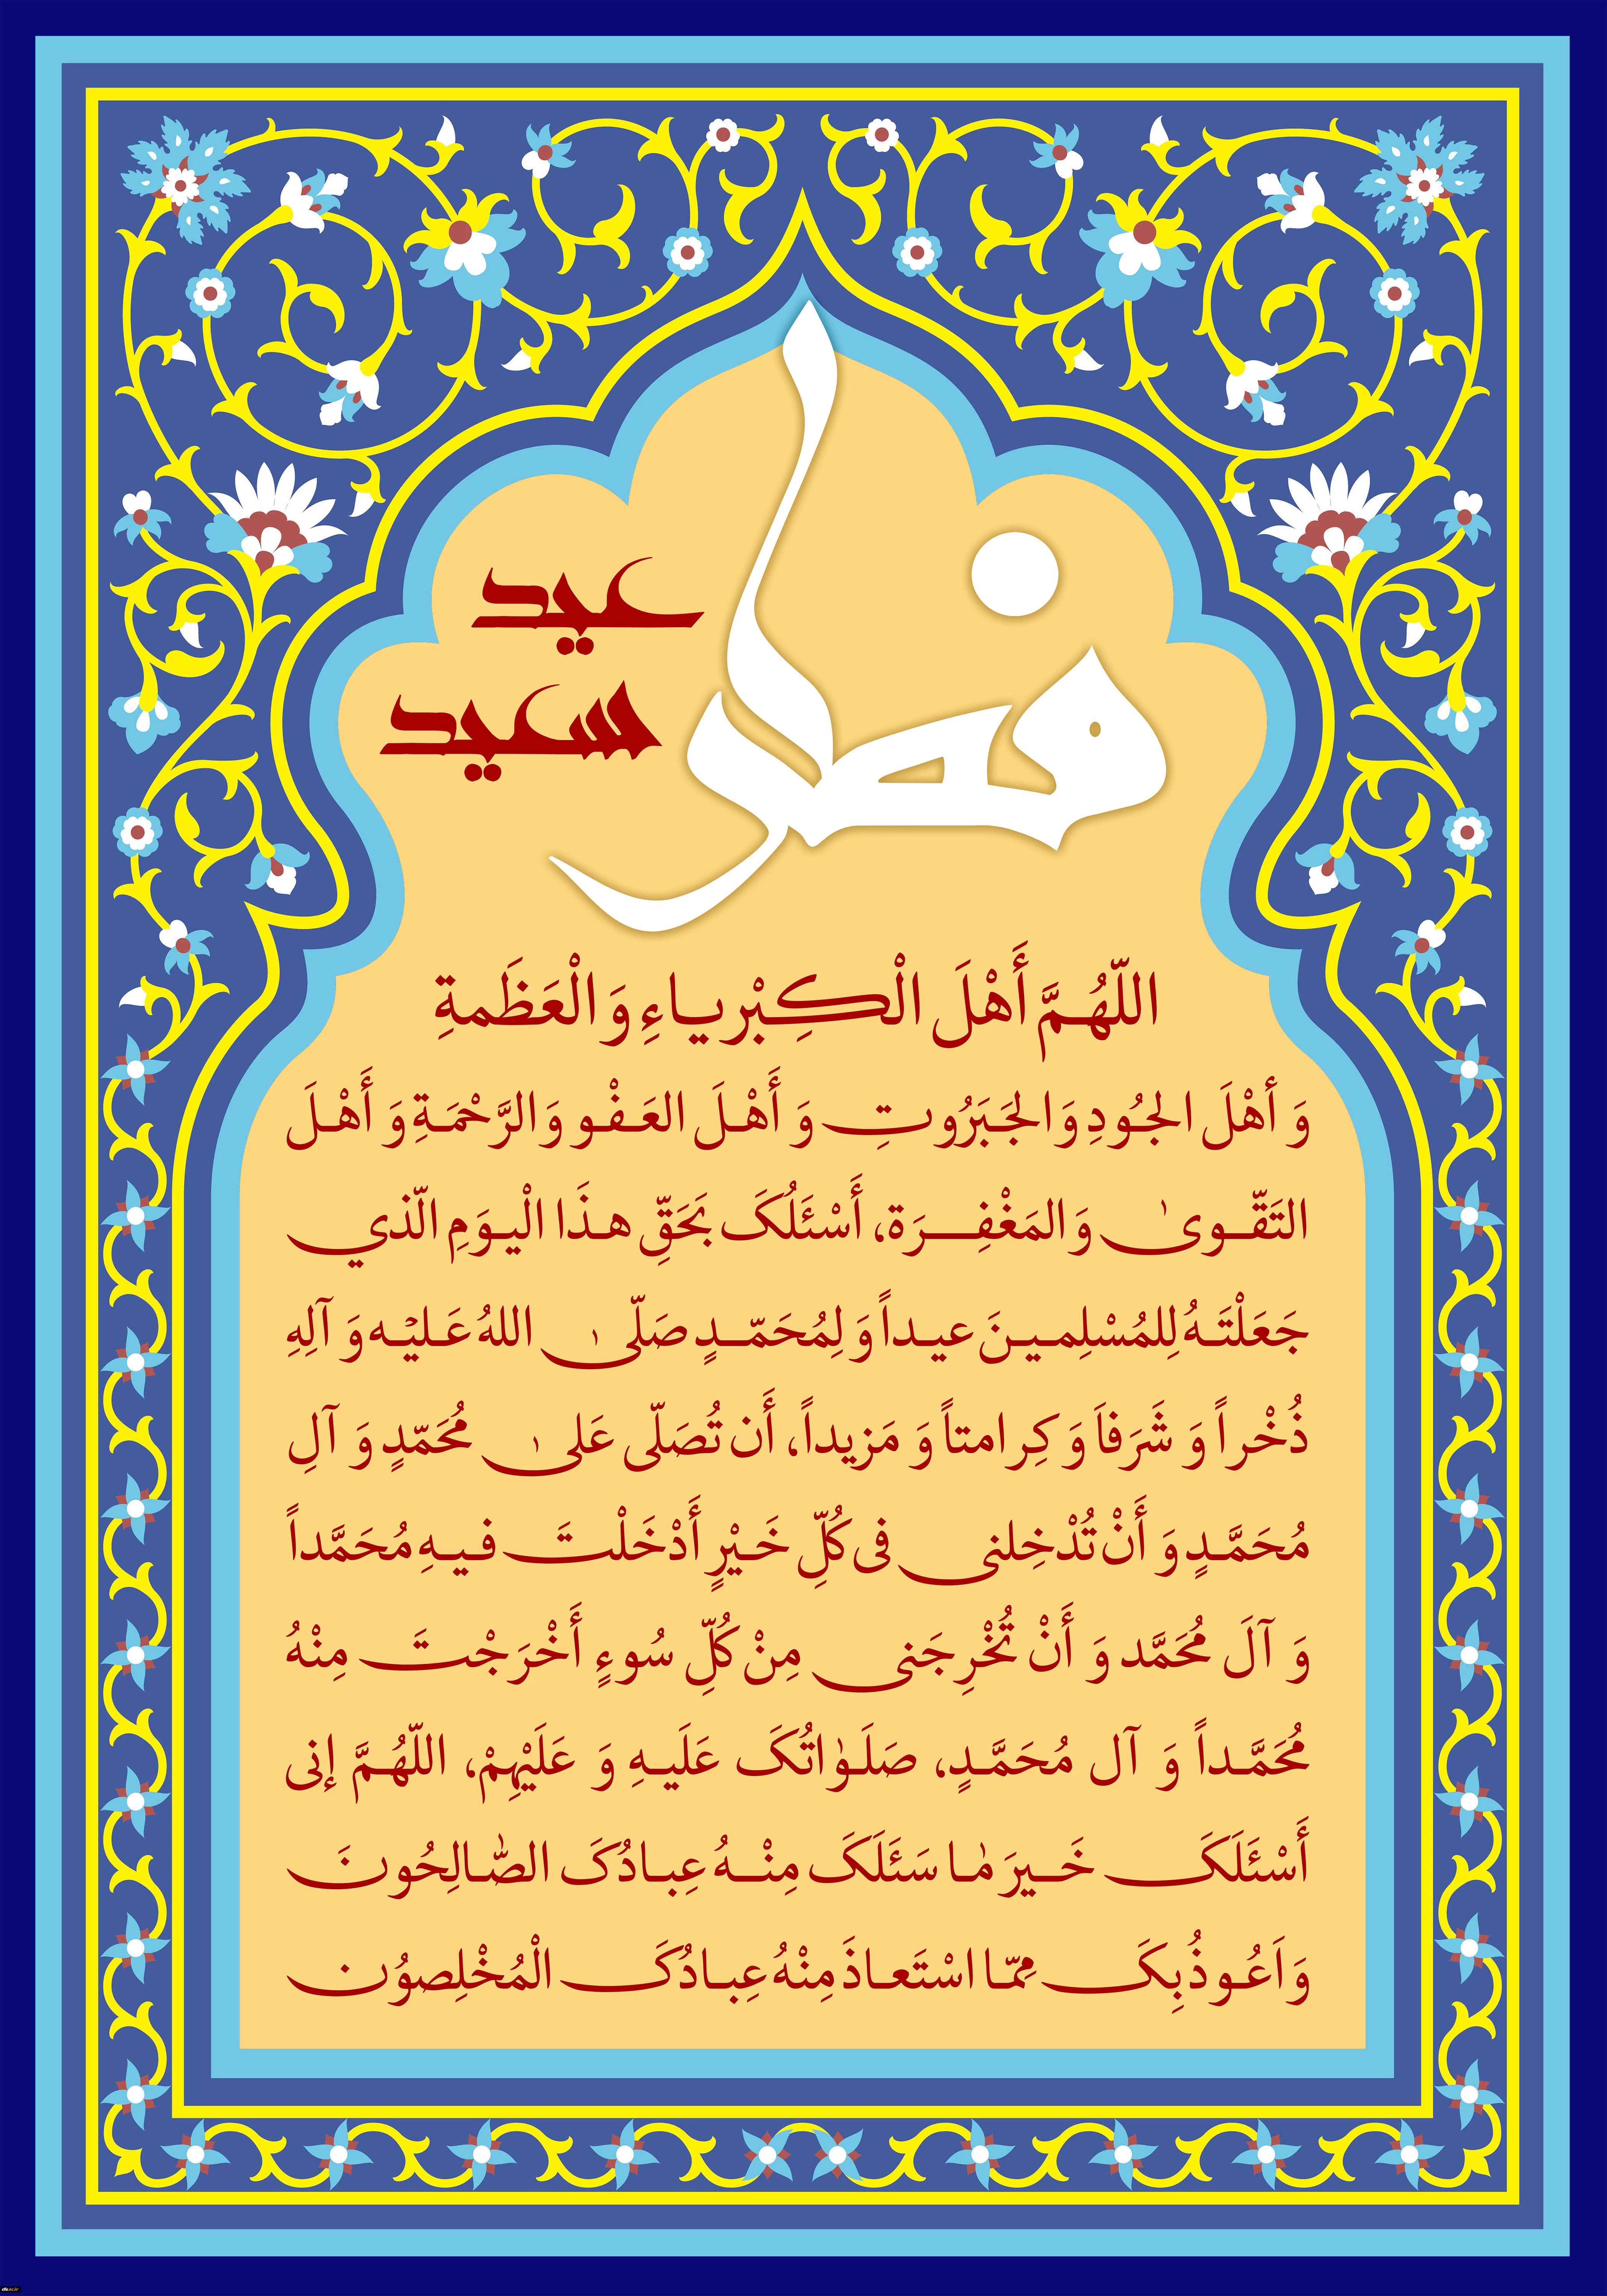 عید
فطر
سعید
اللّهُمَّ أَهْلَ الْكِبْرياءِ وَالْعَظَمةِ
وَ أَهْلَ الجُودِ وَالجَبَرُوتِ وَ أَهْلَ العَفْو وَالرَّحْمَةِ وَ أَهْلَ
التَقّوىٰ وَالمَغْفِرَة، أَسْئَلُکَ بَحَقِّ هذَا الْیوَمِ الّذي
جَعَلْتَهُ لِلمُسْلِمینَ عیداً وَ لِمُحَمّدٍ صَلّیٰ اللهُ عَلیْه وَ آلِهِ
ذُخْراً وَ شَرَفاَ وَ کِرامتاً وَ مَزیداً، أَن تُصَلّی عَلیٰ مُحَمّدٍ وَ آلِ
مُحَمَّدٍ وَ أَنْ تُدْخِلنی فی کُلِّ خَیْرٍ أَدْخَلْتَ فیهِ مُحَمَّداً
وَ آلَ مُحَمَّد وَ أَنْ تُخْرِجَنی مِنْ کُلِّ سُوءٍ أَخْرَجْتَ مِنْهُ
مُحَمَّداً وَ آل مُحَمَّدٍ، صَلَوٰاتُکَ عَلَیهِ وَ عَلَیْهِمْ، اللّهُمَّ إنی
أَسْئَلَکَ خَیرَ مٰا سَئَلَکَ مِنْهُ عِبادُکَ الصّٰالِحُونَ
وَ اَعُوذُ بِکَ مِمّا اسْتَعاذَ مِنْهُ عِبادُکَ الْمُخْلِصوُن